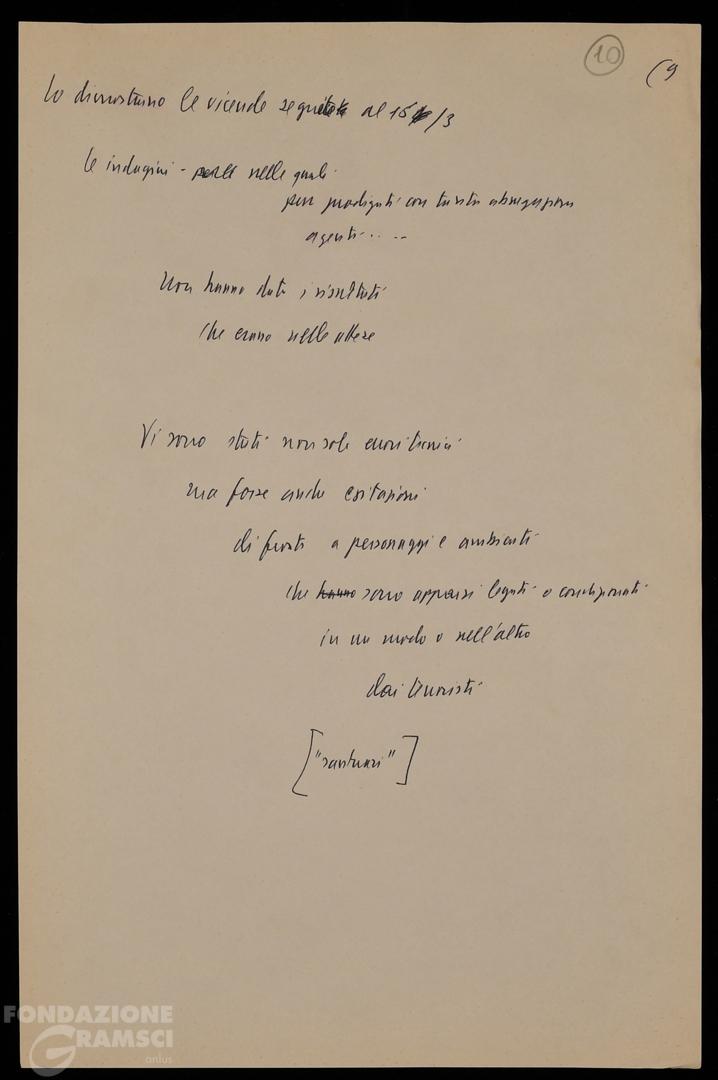 10
(9
Lo dimostrano le vicende seguite al 15/3
Le indagini - nelle quali
pur prodigati con tanta abnegazione
agenti .....
Non hanno dato i risultati
che erano nelle attese
Vi sono stati non solo
ma forse anche esitazioni
di fronte a personaggi e ambienti
che hanno sono apparsi legati o condizionati
in un modo o nell'altro
dai terroristi
["santuari"]
FONDAZIONE
GRAMSCI
onlus